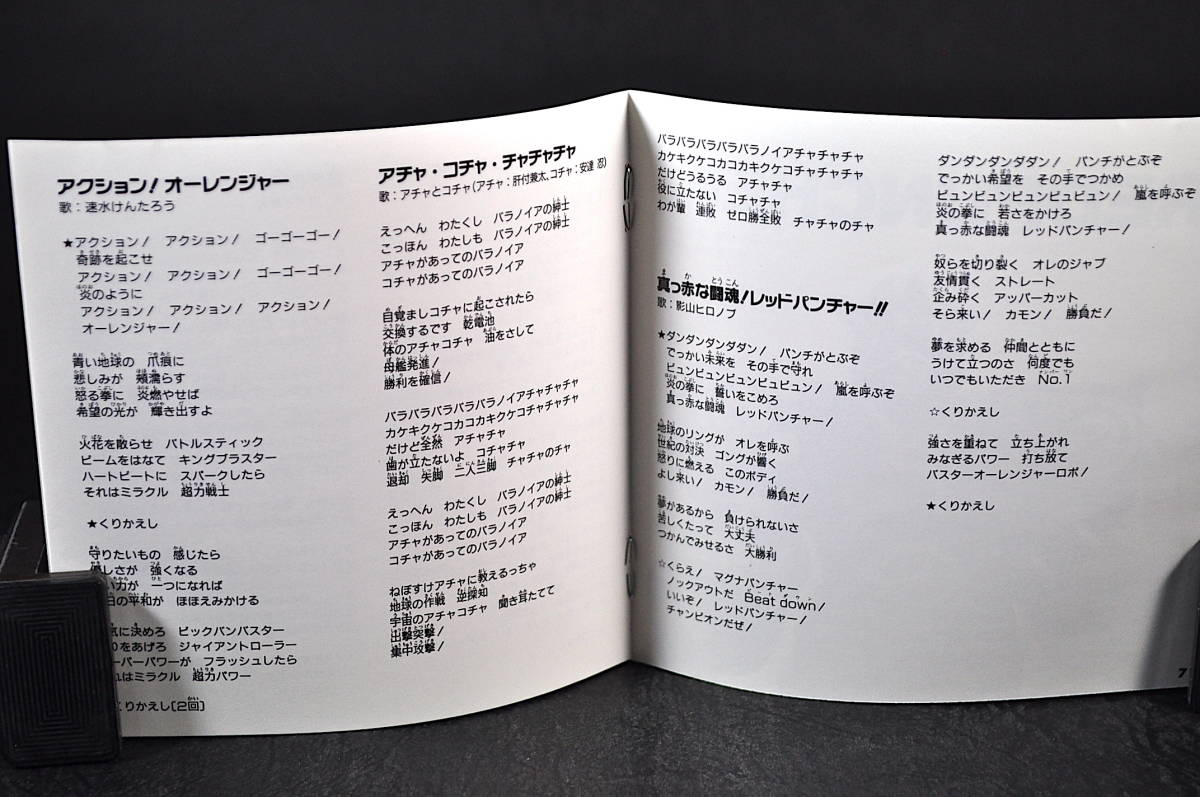 アクション! オーレンジャー
歌：速水けんたろう
★アクション! アクション! ゴーゴーゴー!
奇跡を起こせ
アクション! アクション! ゴーゴーゴー!
炎のように
アクション! アクション! アクション!
オーレンジャー!
青い地球の 爪痕に
悲しみが 頬濡らす
怒る拳に 炎燃やせば
希望の光が 輝き出すよ
火花を散らせ バトルスティック
ビームをはなて キングブラスター
ハートビートに スパークしたら
それはミラクル 超力戦士
★くりかえし
守りたいもの 感じたら
しさが 強くなる
力が 一つになれば
日の平和が ほほえみかける
に決めろ ビックバンバスター
をあげろ ジャイアントローラー
ーパーパワーが フラッシュしたら
れはミラクル 超力パワー
くりかえし〔2回〕
アチャ・コチャ・チャチャチャ
歌：アチャとコチャ(アチャ：肝付兼太、コチャ：安達 忍)
えっへん わたくし バラノイアの紳士
こっほん わたしも バラノイアの紳士
アチャがあってのバラノイア
コチャがあってのバラノイア
目覚ましコチャに起こされたら
交換するです 乾電池
体のアチャコチャ 油をさして
母艦発進!
勝利を確信!
バラバラバラバラバラノイアチャチャチャ
カケキクケコカコカキクケコチャチャチャ
だけど全然 アチャチャ
歯が立たないよ コチャチャ
退却 失脚 二人三脚 チャチャのチャ
えっへん わたくし バラノイアの紳士
こっほん わたしも バラノイアの紳士
アチャがあってのバラノイア
コチャがあってのバラノイア
ねぼすけアチャに教えるっちゃ
地球の作戦 逆探知
宇宙のアチャコチャ 聞き耳たてて
出撃突撃!
集中攻撃!
バラバラバラバラバラノイアチャチャチャ
カケキクケコカコカキクケコチャチャチャ
だけどうるうる アチャチャ
役に立たない コチャチャ
わが輩 連敗 ゼロ勝全敗 チャチャのチャ
真っ赤な闘魂!レッドパンチャー!!
歌：影山ヒロノブ
★ダンダンダンダダン! パンチがとぶぞ
でっかい未来を その手で守れ
ビュンビュンビュンビュビュン! 嵐を呼ぶぞ
炎の拳に 誓いをこめろ
真っ赤な闘魂 レッドパンチャー!
地球のリングが オレを呼ぶ
世紀の対決 ゴングが響く
怒りに燃える このボディ
よし来い! カモン! 勝負だ!
夢があるから 負けられないさ
苦しくたって 大丈夫
つかんでみせるさ 大勝利
☆くらえ! マグナパンチャー
ノックアウトだ Beat down!
いいぞ! レッドパンチャー!
チャンピオンだぜ!
ダンダンダンダダン! パンチがとぶぞ
でっかい希望を その手でつかめ
ビュンビュンビュンビュビュン! 嵐を呼ぶぞ
炎の拳に 若さをかけろ
真っ赤な闘魂 レッドパンチャー!
奴らを切り裂く オレのジャブ
友情貫く ストレート
企み砕く アッパーカット
そら来い! カモン! 勝負だ!
夢を求める 仲間とともに
うけて立つのさ 何度でも
いつでもいただき No.1
☆くりかえし
強さを重ねて 立ち上がれ
みなぎるパワー 打ち放て
バスターオーレンジャーロボ!
★くりかえし
7